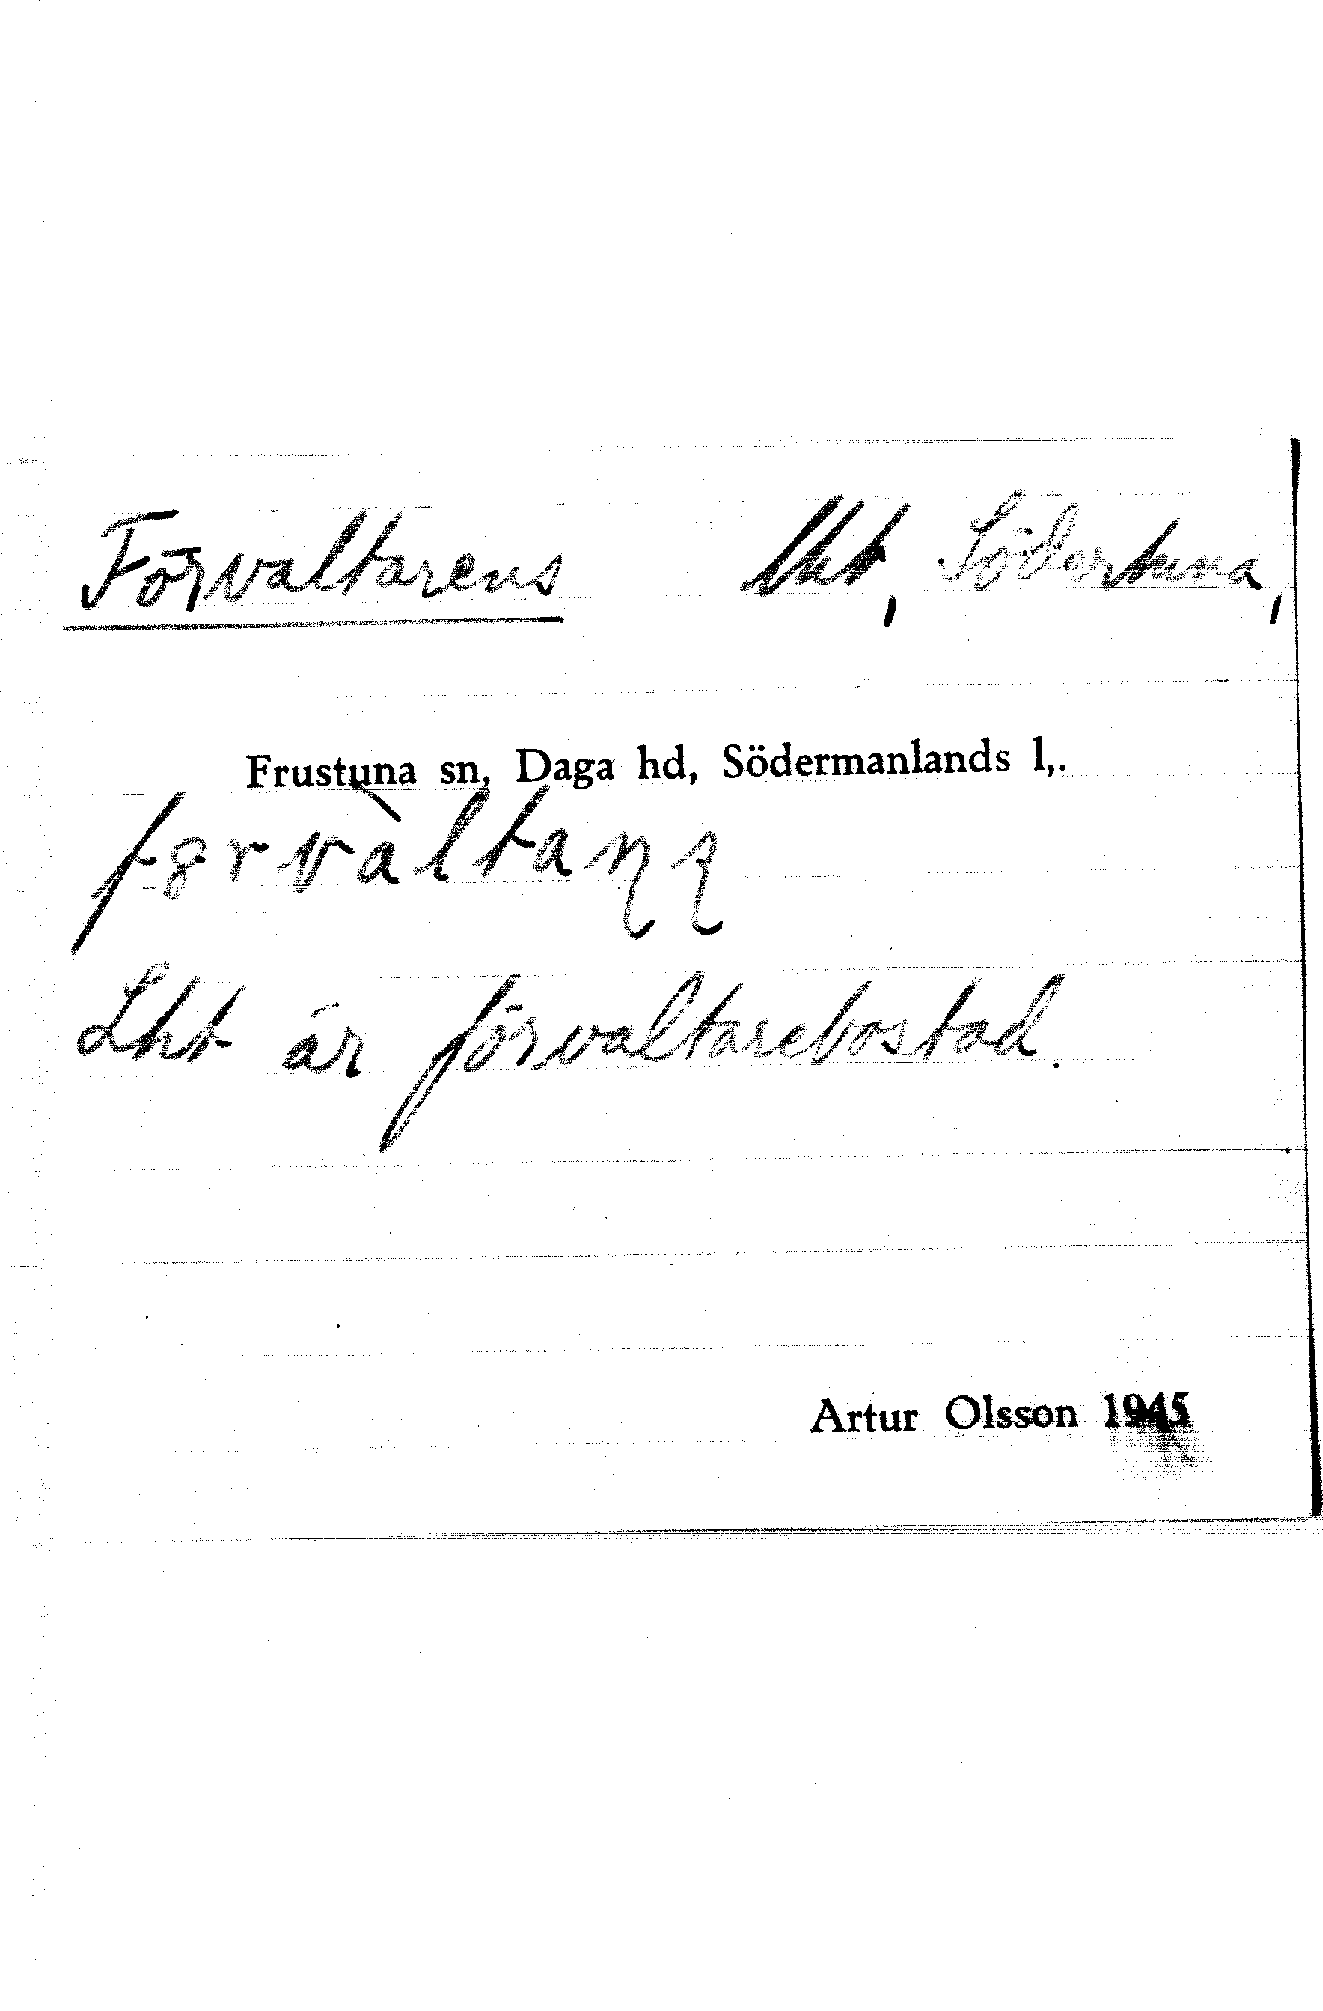 Förvaltarens lht, Södertuna,
Frustuna sn, Daga hd, Södermanlands l,.
Lht är förvaltarebostad.
Artur Olsson 1945